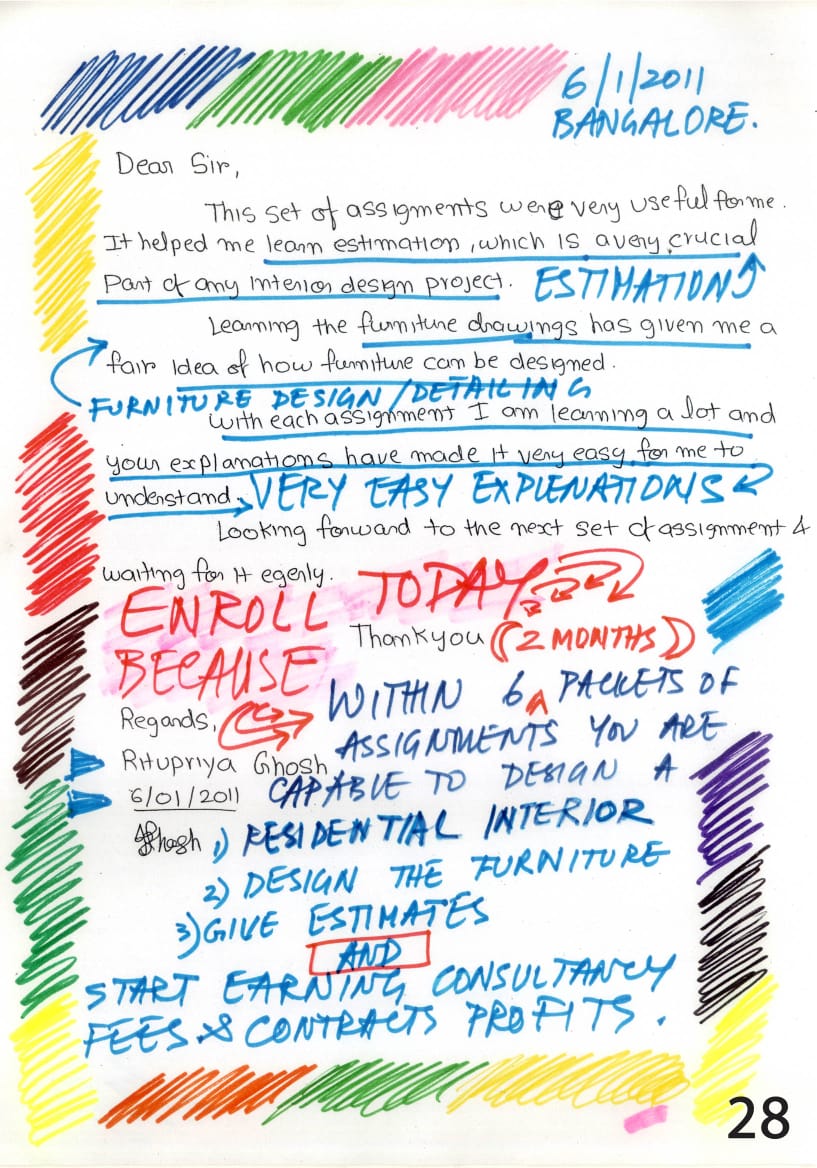 6/1/2011
BANGALORE.
Dear Sir,
This set of assigments were very useful for me.
It helped me learn estimation, which is a very crucial
Part of any Interior design project. ESTIMATION
Learning the furniture drawings has given me a
fair Idea of how furniture can be designed.
FURNITURE DESIGN/DETAILING
With each assignment I am learning a lot and
your explanations have made it very easy for me to
understand. VERY EASY EXPLENATIONS
Looking forward to the next set of assignment &
waiting for it egerly.
ENROLL TODAY
Thankyou (2 MONTHS)
BECAUSE
WITHIN 6 PACKETS OF
Regards,
ASSIGNMENTS YOU ARE
Ritupriya Ghosh
CAPABLE TO DESIGN A
6/01/2011
Ghosh 1) RESIDENTIAL INTERIOR
2) DESIGN THE FURNITURE
3) GIVE ESTIMATES
AND
START EARNING CONSULTANCY
FEES & CONTRACTS PROFITS.
28